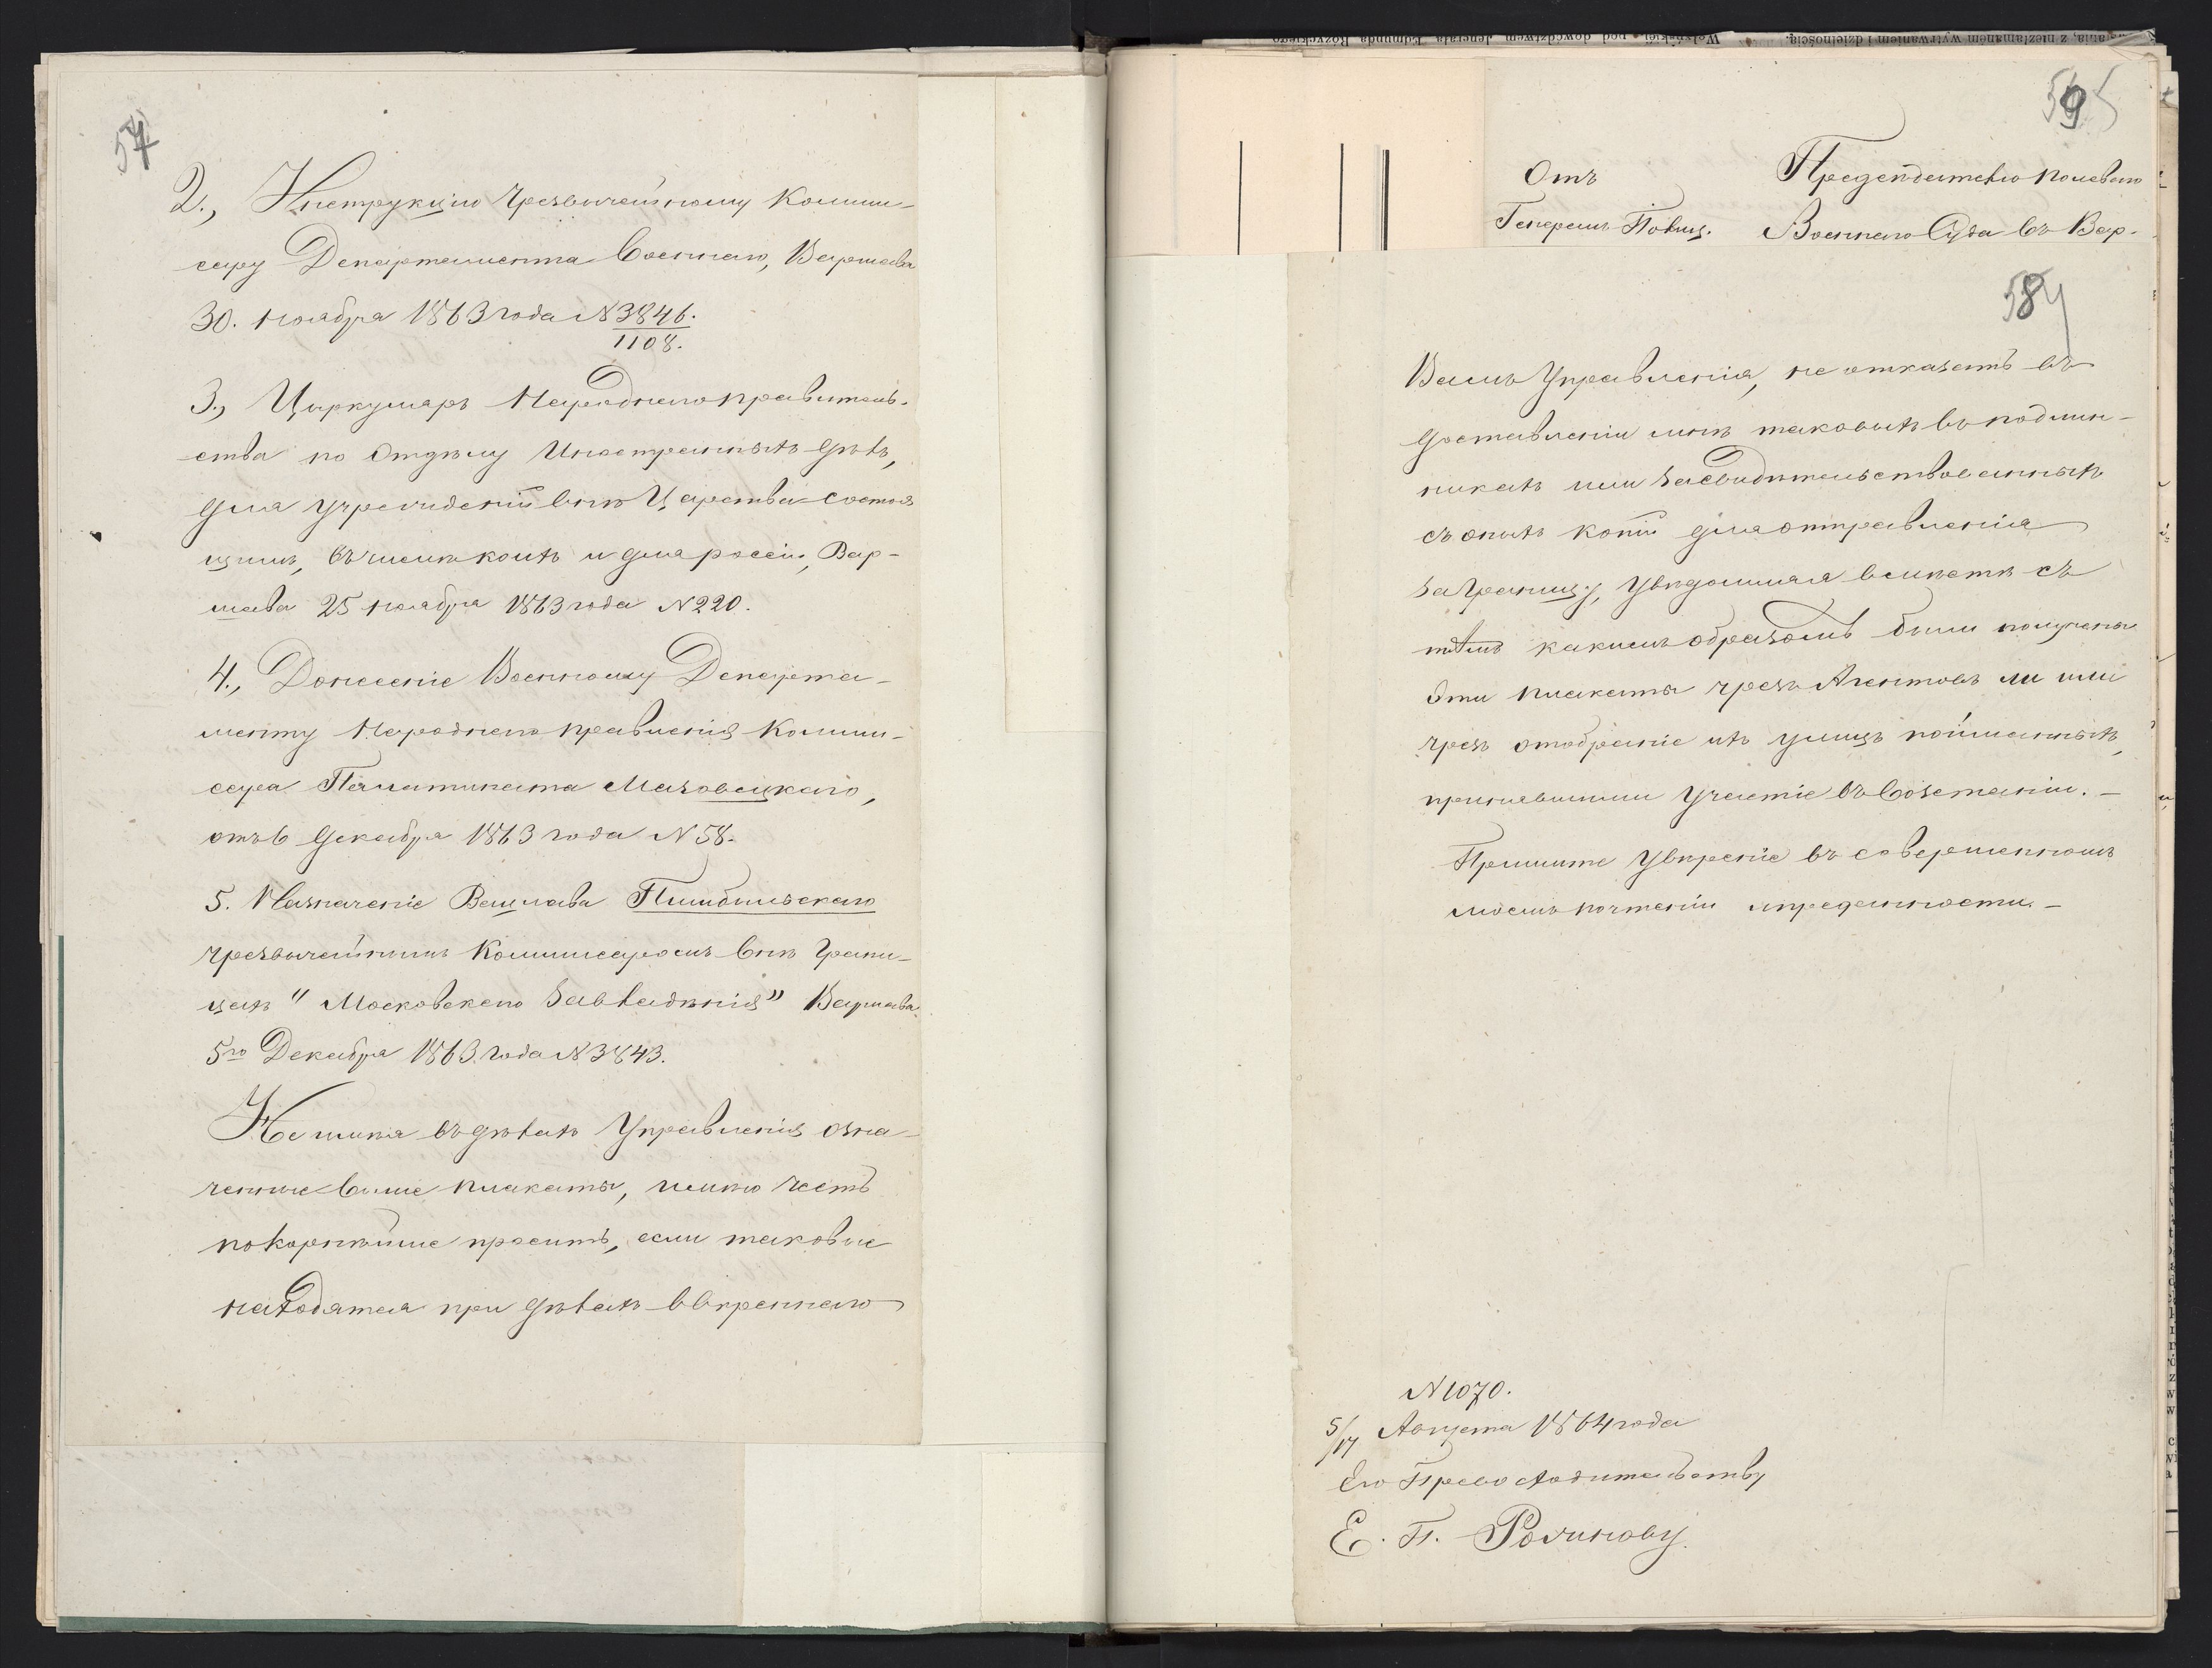 57
2., Инструкцію Чрезвычайному Коммис-
сару Департамента Военнаго, Варшава
30. ноября 1863 года N 3846.
1108.
3., Циркуляръ Народнаго правитель-
ства по Отдѣлу Иностранныхъ дѣлъ,
для учрежденій внѣ Царства состоя
щихъ, въ числѣ коихъ и для россіи, Вар-
шава 25 ноября 1863 года N 220.
4., Донесеніе Военному Департа-
менту Народнаго правленія Коммис-
сара Палатината Мазовецкаго,
отъ 6 декабря 1863 года N 58.
5. Назначеніе Вацлава
чрезвычайнымъ Коммиссаромъ внѣ Грани-
цахъ "Московскаго Завладѣнія" Варшава
5го Декабря 1863. года N 3843.
Не имѣя въ дѣлахъ Управленія озна-
ченные выше плакаты, имѣю честь
покорнѣйше просить, если таковые
находятся при дѣлахъ ввѣреннаго
59
Отъ Предсѣдателю полеваго
Генералъ Полиц. Военнаго Суда въ Вар.
58
Вамъ Управленія, не отказать въ
доставленіи мнѣ таковыхъ въ подлин-
никахъ или засвидѣтельствованныхъ
съ оныхъ копій для отправленія
за Границу, увѣдомляя вмѣстѣ съ
тѣмъ какимъ образомъ были получены
эти плакаты чрезъ Агентовъ ли или
чрезъ отобраніе ихъ у лицъ пойманныхъ,
принявшими участіе въ возстаніи. –
Примите увѣреніе въ совершенномъ
моемъ почтеніи и преданности. –
N 1070.
5/17 Августа 1864 года
Его Превосходительству
Е. П. Рожнову.